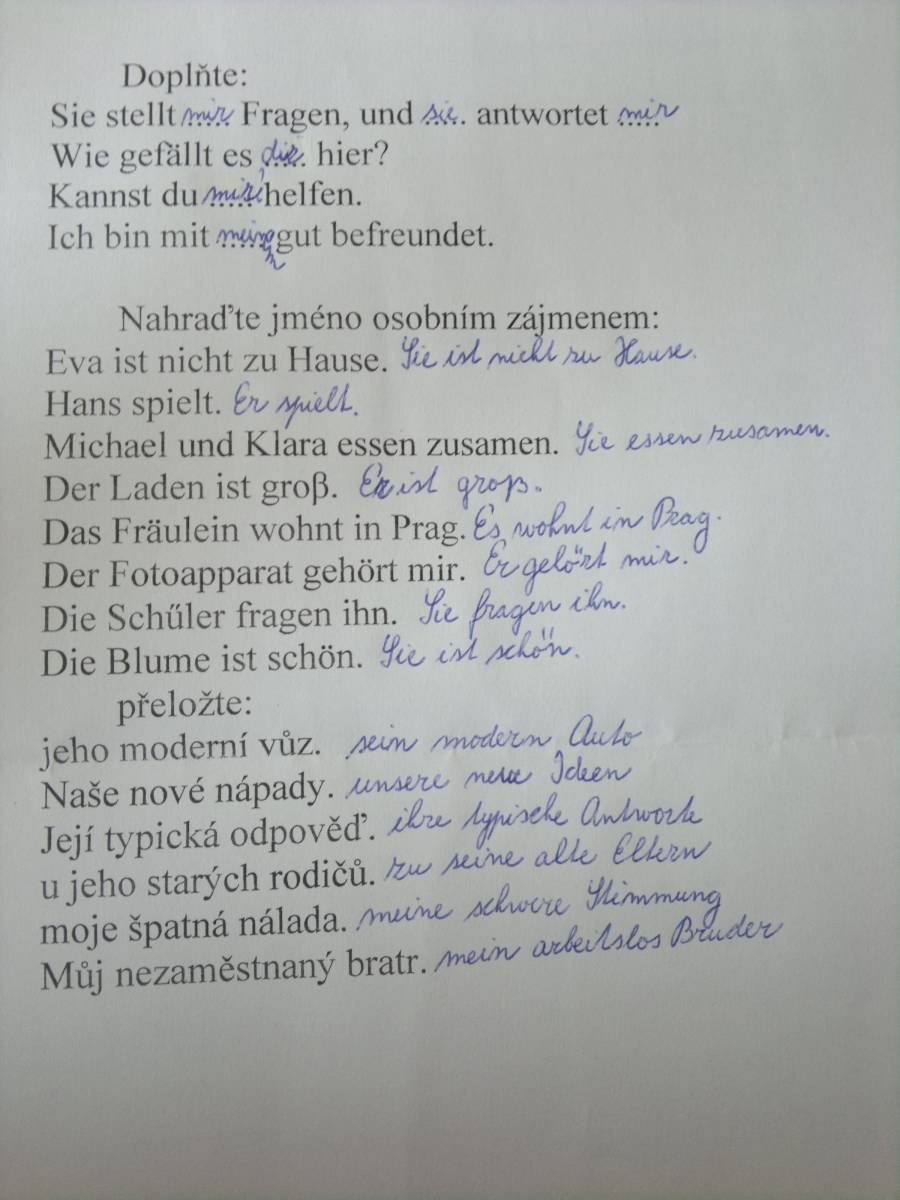 Doplňte:
Sie stellt mir Fragen, und sie antwortet mir
Wie gefällt es dir hier?
Kannst du mir helfen.
Ich bin mit gut befreundet.
Nahraďte jméno osobním zájmenem:
Eva ist nicht zu Hause. Sie ist nicht zu Hause.
Hans spielt. Er spielt.
Michael und Klara essen zusamen. Sie essen zusamen.
Der Laden ist groβ. Er ist groß.
Das Fräulein wohnt in Prag. Es wohnt in Prag.
Der Fotoapparat gehört mir. Er gehört mir.
Die Schűler fragen ihn. Sie fragen ihn.
Die Blume ist schön. Sie ist schön.
přeložte:
jeho moderní vůz. sein modern Auto
Naše nové nápady. unsere neue Ideen
Její typická odpověď. ihre typische Antworte
u jeho starých rodičů. zu seine alte Eltern
moje špatná nálada. meine schwere Stimmung
Můj nezaměstnaný bratr. mein arbeitslos Bruder